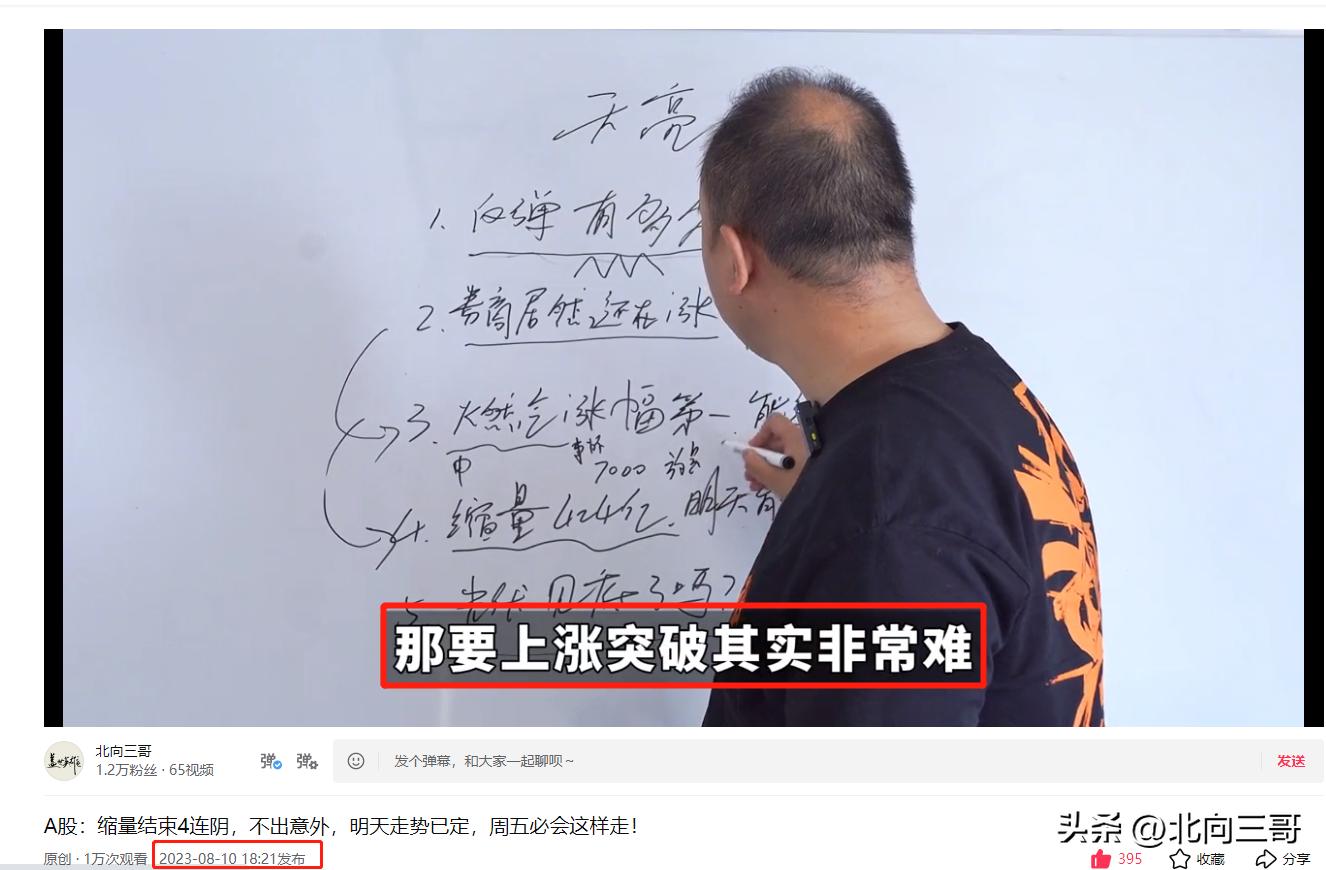 天亮
1. 反弹有多
2. 券商居然还在涨
3. 燃气涨幅第一 能
中 7000
4. 缩量424亿. 明天有
5. 光伏见底了吗?
那要上涨突破其实非常难
北向三哥
1.2万粉丝 · 65视频
弹 弹
发个弹幕，和大家一起聊呗~
发送
A股：缩量结束4连阴，不出意外，明天走势已定，周五必会这样走！
头条 @北向三哥
原创 · 1万次观看 2023-08-10 18:21发布
395 收藏 分享